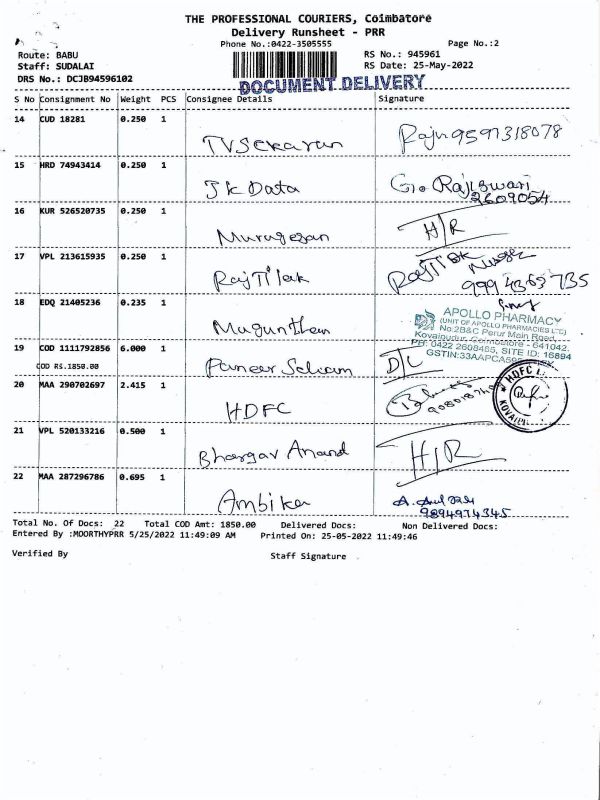 THE PROFESSIONAL COURIERS, Coimbatore
Delivery Runsheet - PRR
Phone No.:0422-3505555
Page No.:2
Route: BABU
RS No.: 945961
Staff: SUDALAI
RS Date: 25-May-2022
DRS No.: DCJB94596102
DOCUMENT DELIVERY
S No Consignment No Weight PCS Consignee Details Signature
14 CUD 18281 0.250 1
TVSekaran Raju 9597318078
15 HRD 74943414 0.250 1
JK Data G.o Rajeswari
2609054
16 KUR 526520735 0.250 1
Murugesan H/R
17 VPL 213615935 0.250 1
RajTilak RajTilak
9994363735
18 EDQ 21405236 0.235 1
Mugunthan
APOLLO PHARMACY
(UNIT OF APOLLO PHARMACIES LTD)
No:2B&C Perur Main Road,
Kovaipudur, Coimbatore - 641042.
PB: 0422 2608485, SITE ID: 16894
GSTIN:33AAPCA
19 COD 1111792856 6.000 1
COD RS.1850.00
Paneer Selvam D/L
20 MAA 290702697 2.415 1
HDFC
HDFC
21 VPL 520133216 0.500 1
Bhargav Anand H/R
22 MAA 287296786 0.695 1
Ambika A.
9894974345
Total No. Of Docs: 22 Total COD Amt: 1850.00 Delivered Docs: Non Delivered Docs:
Entered By :MOORTHYPRR 5/25/2022 11:49:09 AM Printed On: 25-05-2022 11:49:46
Verified By Staff Signature